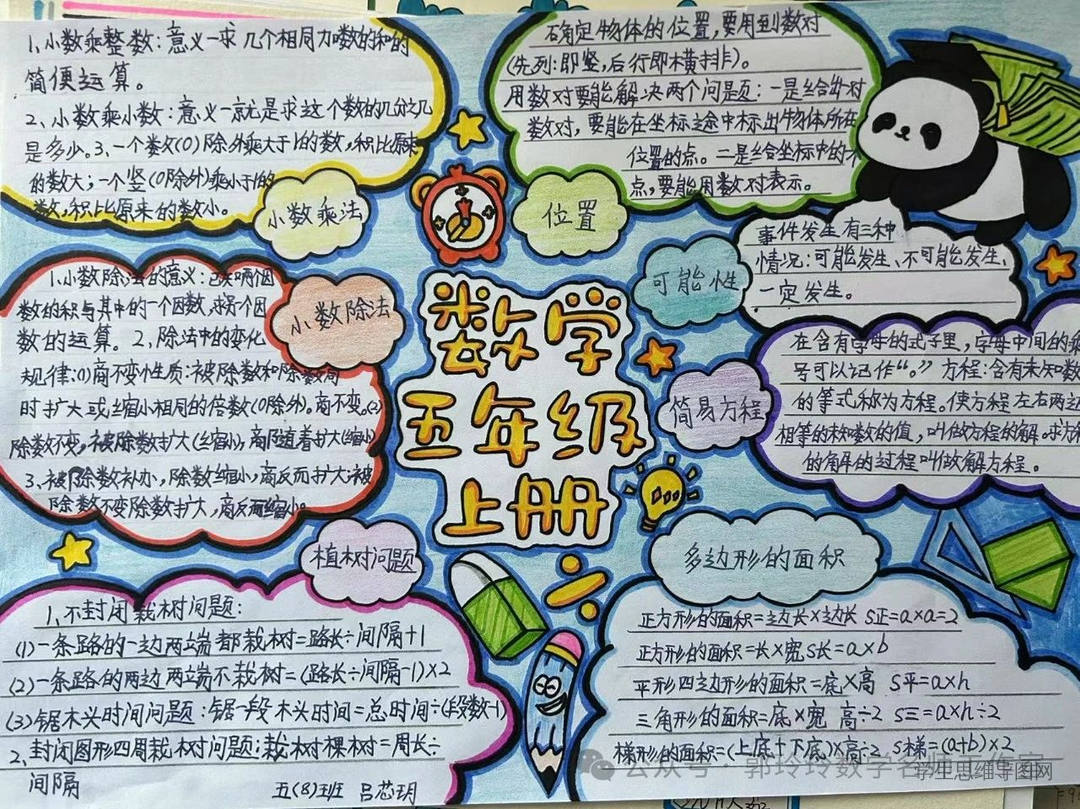 1、小数乘整数:意义一求几个相同加数的和的
简便运算。
2、小数乘小数:意义一就是求这个数的几分之几
是多少。3、一个数(0)除外乘大于1的数,积比原来
的数大;一个竖(0除外)乘小于1的
数,积比原来的数小。
小数乘法
确定物体的位置,要用到数对
(先列:即竖,后行即横排)。
用数对要能解决两个问题:一是给出对
数对,要能在坐标途中标出物体所在
位置的点。二是给坐标中的
点,要能用数对表示。
位置
事件发生有三种
情况:可能发生、不可能发生、
一定发生。
可能性
1、小数除法的意义:已知两个因
数的积与其中的一个因数,求另个因
数的运算。2、除法中的变化
规律:(1)商不变性质:被除数和除数同
时扩大或缩小相同的倍数(0除外)。商不变。(2)
除数不变,被除数扩大(缩小),商随着扩大(缩小)
3、被除数补办,除数缩小,商反而扩大;被
除数不变除数扩大,商反而缩小。
小数除法
数学
五年级
上册
在含有字母的式子里,字母中间的乘
号可以记作“。”方程:含有未知数
的等式称为方程。使方程左右两边
相等的未知数的值,叫做方程的解。求方程
的解的过程叫做解方程。
简易方程
植树问题
1、不封闭栽树问题:
(1)一条路的一边两端都栽树=路长÷间隔+1
(2)一条路的两边两端不栽树=(路长÷间隔-1)×2
(3)锯木头时间问题:锯一段木头时间=总时间÷(段数-1)
2、封闭图形四周栽树问题:栽树棵树=周长÷
间隔
五(8)班 吕芯玥
多边形的面积
正方形的面积=边长×边长 S正=a×a=2
正方形的面积=长×宽 S长=a×b
平形四边形的面积=底×高 S平=a×h
三角形的面积=底×宽 高÷2 S三=a×h÷2
梯形的面积=(上底+下底)×高÷2 S梯=(a+b)×2
公众号 郭玲玲数学名师工作室
学生思维导图网